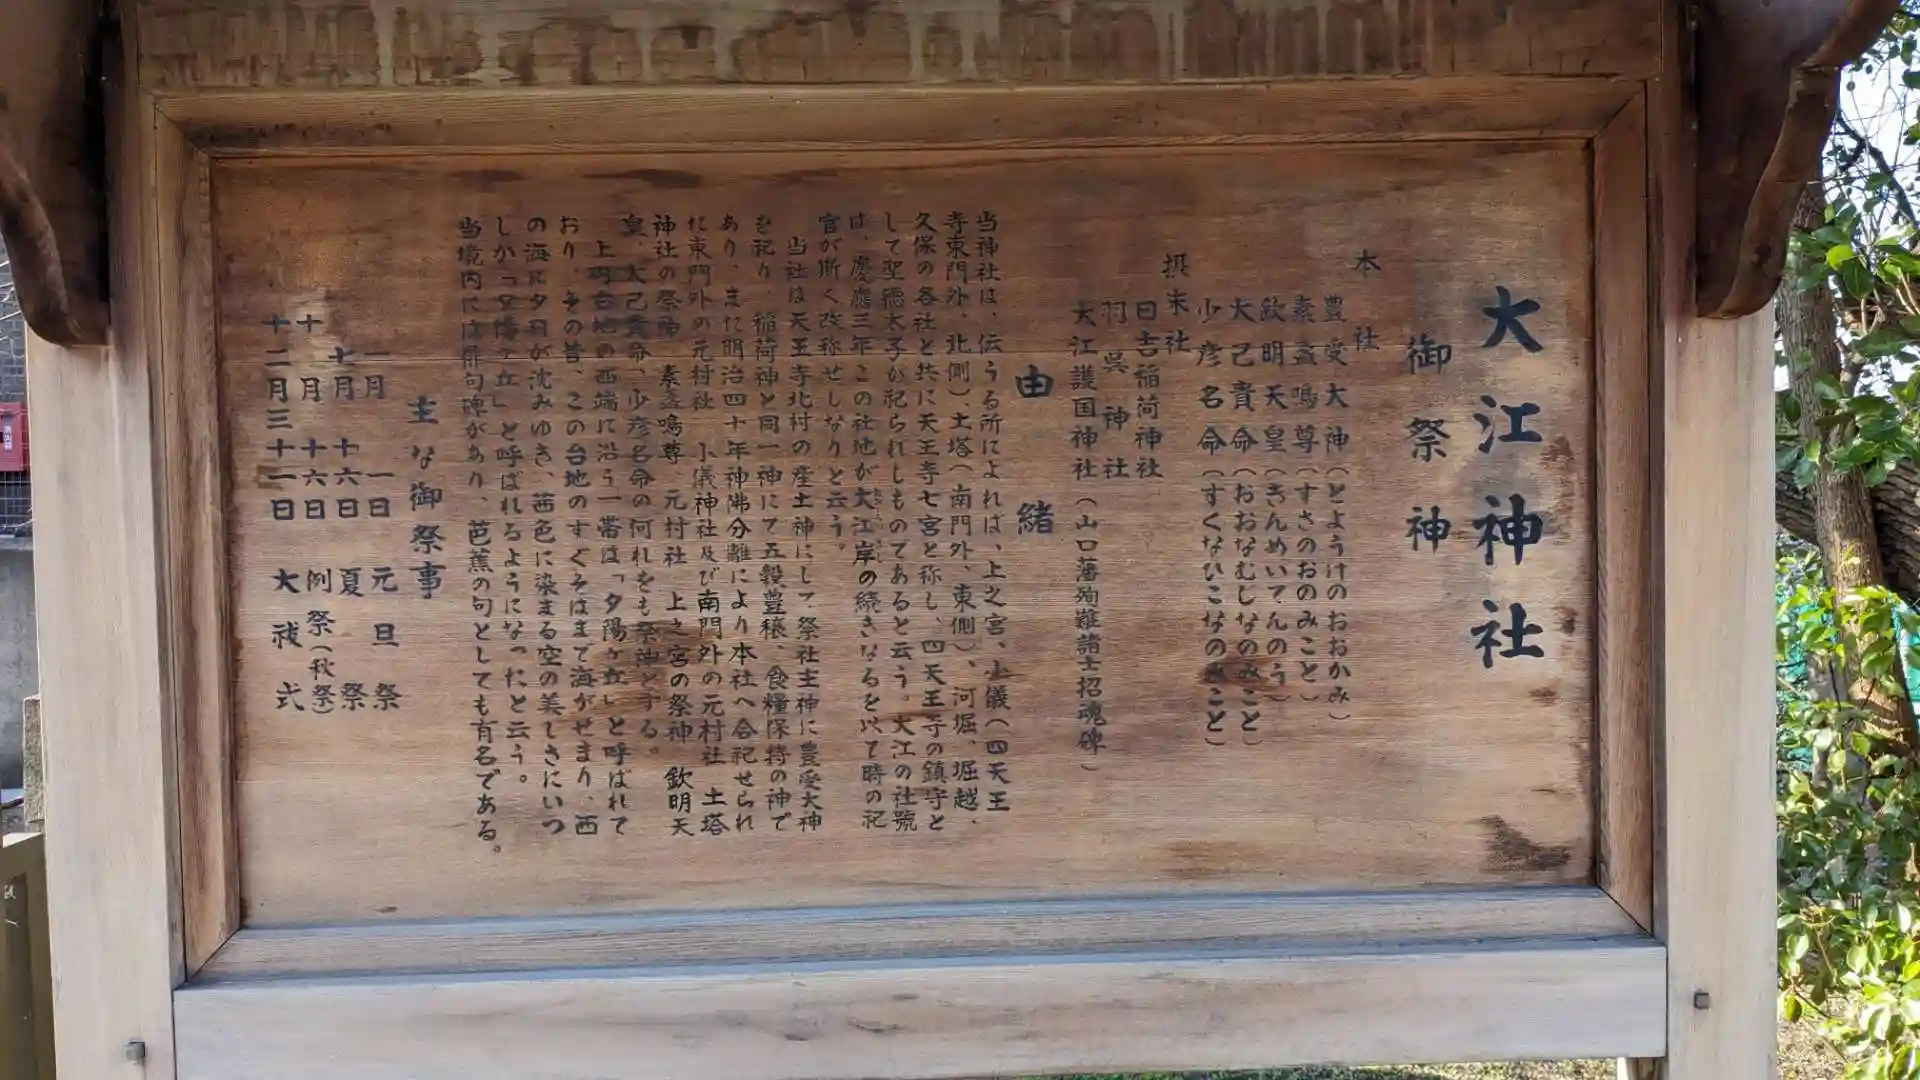 大江神社
御祭神
本社
豊受大神(とようけのおおかみ)
素盞嗚尊(すさのおのみこと)
欽明天皇(きんめいてんのう)
大己貴命(おおなむじなのみこと)
少彦名命(すくなひこなのみこと)
摂末社
日吉稲荷神社
羽呉神社
大江護国神社(山口藩殉難諸士招魂碑)
由緒
当神社は、伝うる所によれば、上之宮、小儀(四天王
寺東門外、北側)、土塔(南門外、東側)、河堀、堀越、
久保の各社と共に天王寺七宮と称し、四天王寺の鎮守と
して聖徳太子が祀られしものであると云う。大江の社號
は、慶應三年この社地が大江岸の続きなるを以て時の祀
官が斯く改称せしなりと云う。
当社は天王寺北村の産土神にして祭社主神に豊受大神
を祀り、稲荷神と同一神にて五穀豊穣、食糧保持の神で
あり、また明治四十年神佛分離により本社へ合祀せられ
た東門外の元村社 小儀神社及び南門外の元村社 土塔
神社の祭神 素盞嗚尊、元村社 上之宮の祭神 欽明天
皇、大己貴命、少彦名命の何れをも祭神とする。
上町台地の西端に沿う一帯は「夕陽ヶ丘」と呼ばれて
おり、その昔、この台地のすぐそばまで海がせまり、西
の海に夕日が沈みゆき、茜色に染まる空の美しさにいつ
しか「夕陽ヶ丘」と呼ばれるようになったと云う。
当境内には俳句碑があり、芭蕉の句としても有名である。
主な御祭事
一月 一日 元旦祭
七月 十六日 夏祭
十月 十六日 例祭(秋祭)
十二月三十一日 大祓式